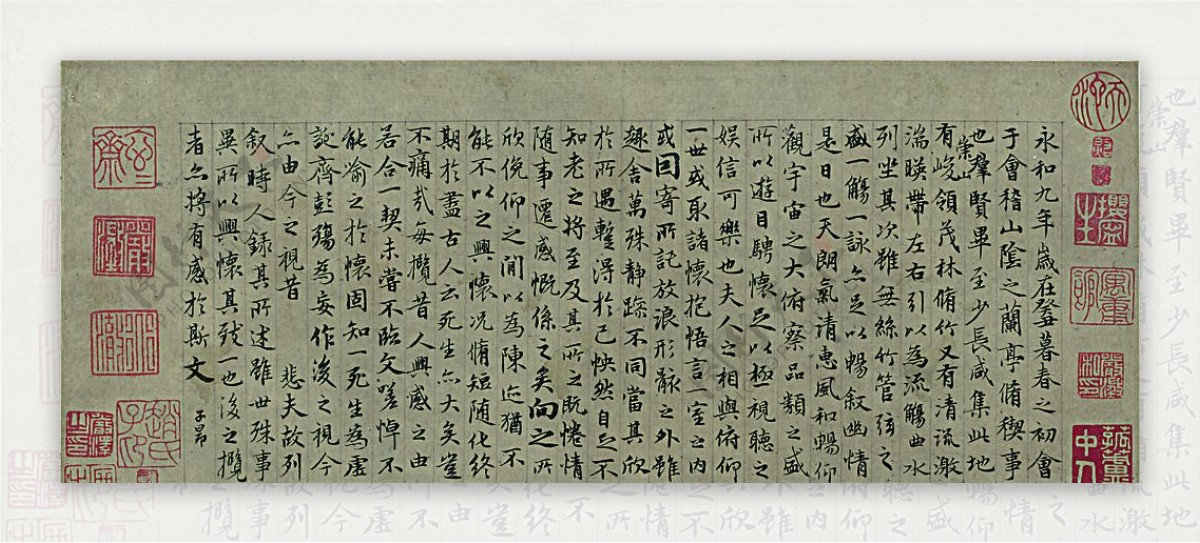 永和九年歲在癸丑暮春之初會
于會稽山陰之蘭亭脩稧事
也羣賢畢至少長咸集此地
崇山
有峻領茂林脩竹又有清流激
湍暎帶左右引以為流觴曲水
列坐其次雖無絲竹管弦之
盛一觴一詠亦足以暢敘幽情
是日也天朗氣清惠風和暢仰
觀宇宙之大俯察品類之盛
所以遊目騁懷足以極視聽之
娛信可樂也夫人之相與俯仰
一世或取諸懷抱悟言一室之內
或因寄所託放浪形骸之外雖
趣舍萬殊靜躁不同當其欣
於所遇蹔得於己怏然自足不
知老之將至及其所之既惓情
隨事遷感慨係之矣向之所
欣俛仰之閒以為陳迹猶不
能不以之興懷況脩短隨化終
期於盡古人云死生亦大矣豈
不痛哉每攬昔人興感之由
若合一契未嘗不臨文嗟悼不
能喻之於懷固知一死生為虛
誕齊彭殤為妄作後之視今
亦由今之視昔 悲夫故列
敘時人錄其所述雖世殊事
異所以興懷其致一也後之攬
者亦將有感於斯文
子昂